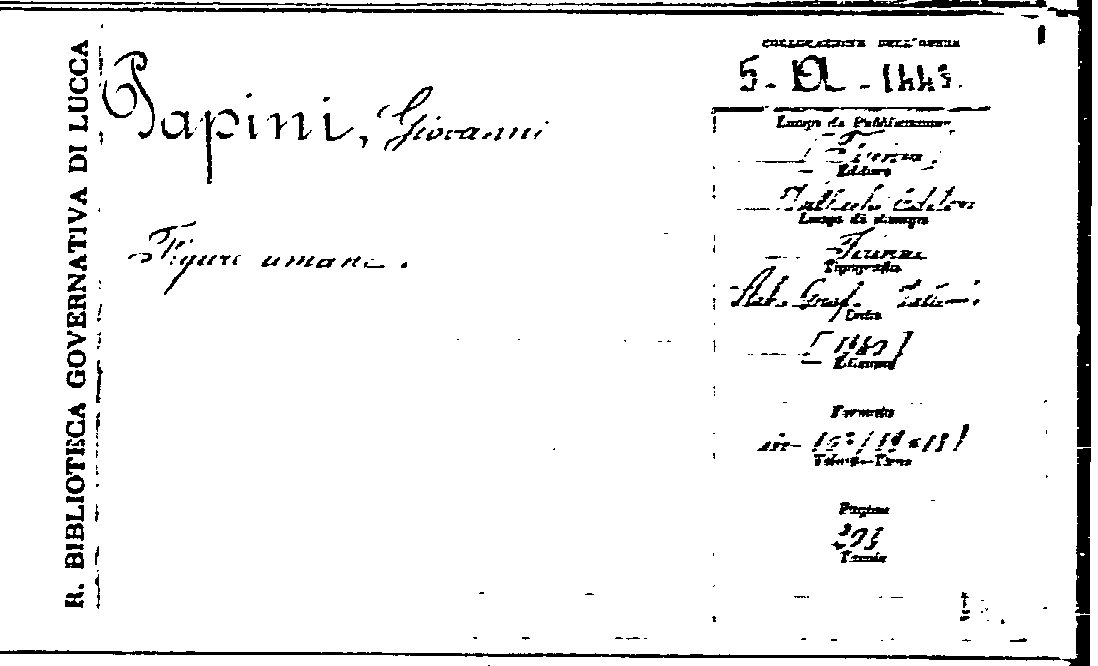 R. BIBLIOTECA GOVERNATIVA DI LUCCA
Papini, Giovanni
Figure umane.
COLLOCAZIONE DELL'OPERA
Luogo di Pubblicazione
[Firenze]
Editore
Vallecchi Editore
Luogo di stampa
Firenze
Tipografia
Stab. Graf.
Data
[1940]
Edizione
Formato
in-16°
Volumi-Tomo
Pagine
Tavole